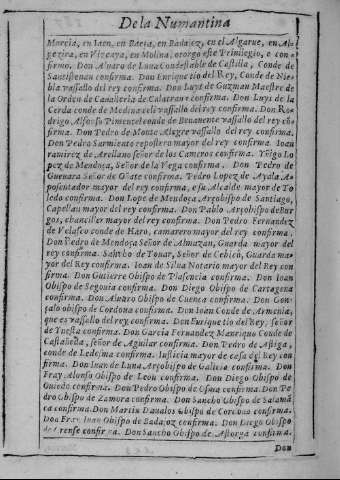 De la Numantina
Murcia, en Iaen, en Baeça, en Badajoz, en el Algarue, en Al-
gezira, en Vizcaya, en Molina, otorgo este Priuilegio, e con-
firmo. Don Aluaro de Luna Condestable de Castilla, Conde de
Santisteuan confirma. Don Enrique tio del Rey, Conde de Nie-
bla vassallo del rey confirma. Don Luys de Guzman Maestre de
la Orden de Caualleria de Calatraua confirma. Don Luys de la
Cerda conde de Medinaceli vassallo del rey confirma. Don Ro-
drigo Alfonso Pimentel conde de Benauente vassallo del rey cõ-
firma. Don Pedro de Monte Alegre vassallo del rey confirma.
Don Pedro Sarmiento repostero mayor del rey confirma. Ioan
ramirez de Arellano señor de los Cameros confirma. Yñigo Lo-
pez de Mendoça, Señor de la Vega confirma. Don Pedro de
Gueuara Señor de Oñate confirma. Pedro Lopez de Ayala A-
posentador mayor del rey confirma, e su Alcalde mayor de To-
ledo confirma. Don Lope de Mendoça Arçobispo de Santiago,
Capellan mayor del rey confirma. Don Pablo Arçobispo de Bur-
gos, chanciller mayor del rey confirma. Don Pedro Fernandez
de Velasco conde de Haro, camarero mayor del rey confirma.
Don Pedro de Mendoça Señor de Almazan, Guarda mayor del
rey confirma. Sancho de Touar, Señor de Cebico, Guarda ma-
yor del Rey confirma. Ioan de Silua Notario mayor del Rey con
firma. Don Gutierre Obispo de Plasencia confirma. Don Ioan
Obispo de Segouia confirma. Don Diego Obispo de Cartagena
confirma. Don Aluaro Obispo de Cuenca confirma. Don Gon-
çalo obispo de Cordona confirma. Don Ioan Conde de Armenia,
que es vassallo del rey confirma. Don Enrique tio del Rey, señor
de Yniesta confirma. Don Garcia Fernandez Manrique Conde de
Castañeda, señor de Aguilar confirma. Don Pedro de Astiga,
conde de Ledesma confirma. Iusticia mayor de casa del Rey con
firma. Don Iuan de Luna Arçobispo de Galicia confirma. Don
Fray Alonso Obispo de Leon confirma. Don Diego Obispo de
Ouiedo confirma. Don Pedro Obispo de Osma confirma. Don Pe-
dro Obispo de Zamora confirma. Don Sancho Obispo de Salamã
ca confirma. Don Martin Daualos Obispo de Cordoua confirma.
Don Fray Iuan Obispo de Badajoz confirma. Don Diego Obispo
de Orense confirma. Don Sancho Obispo de Astorga confirma.
Don